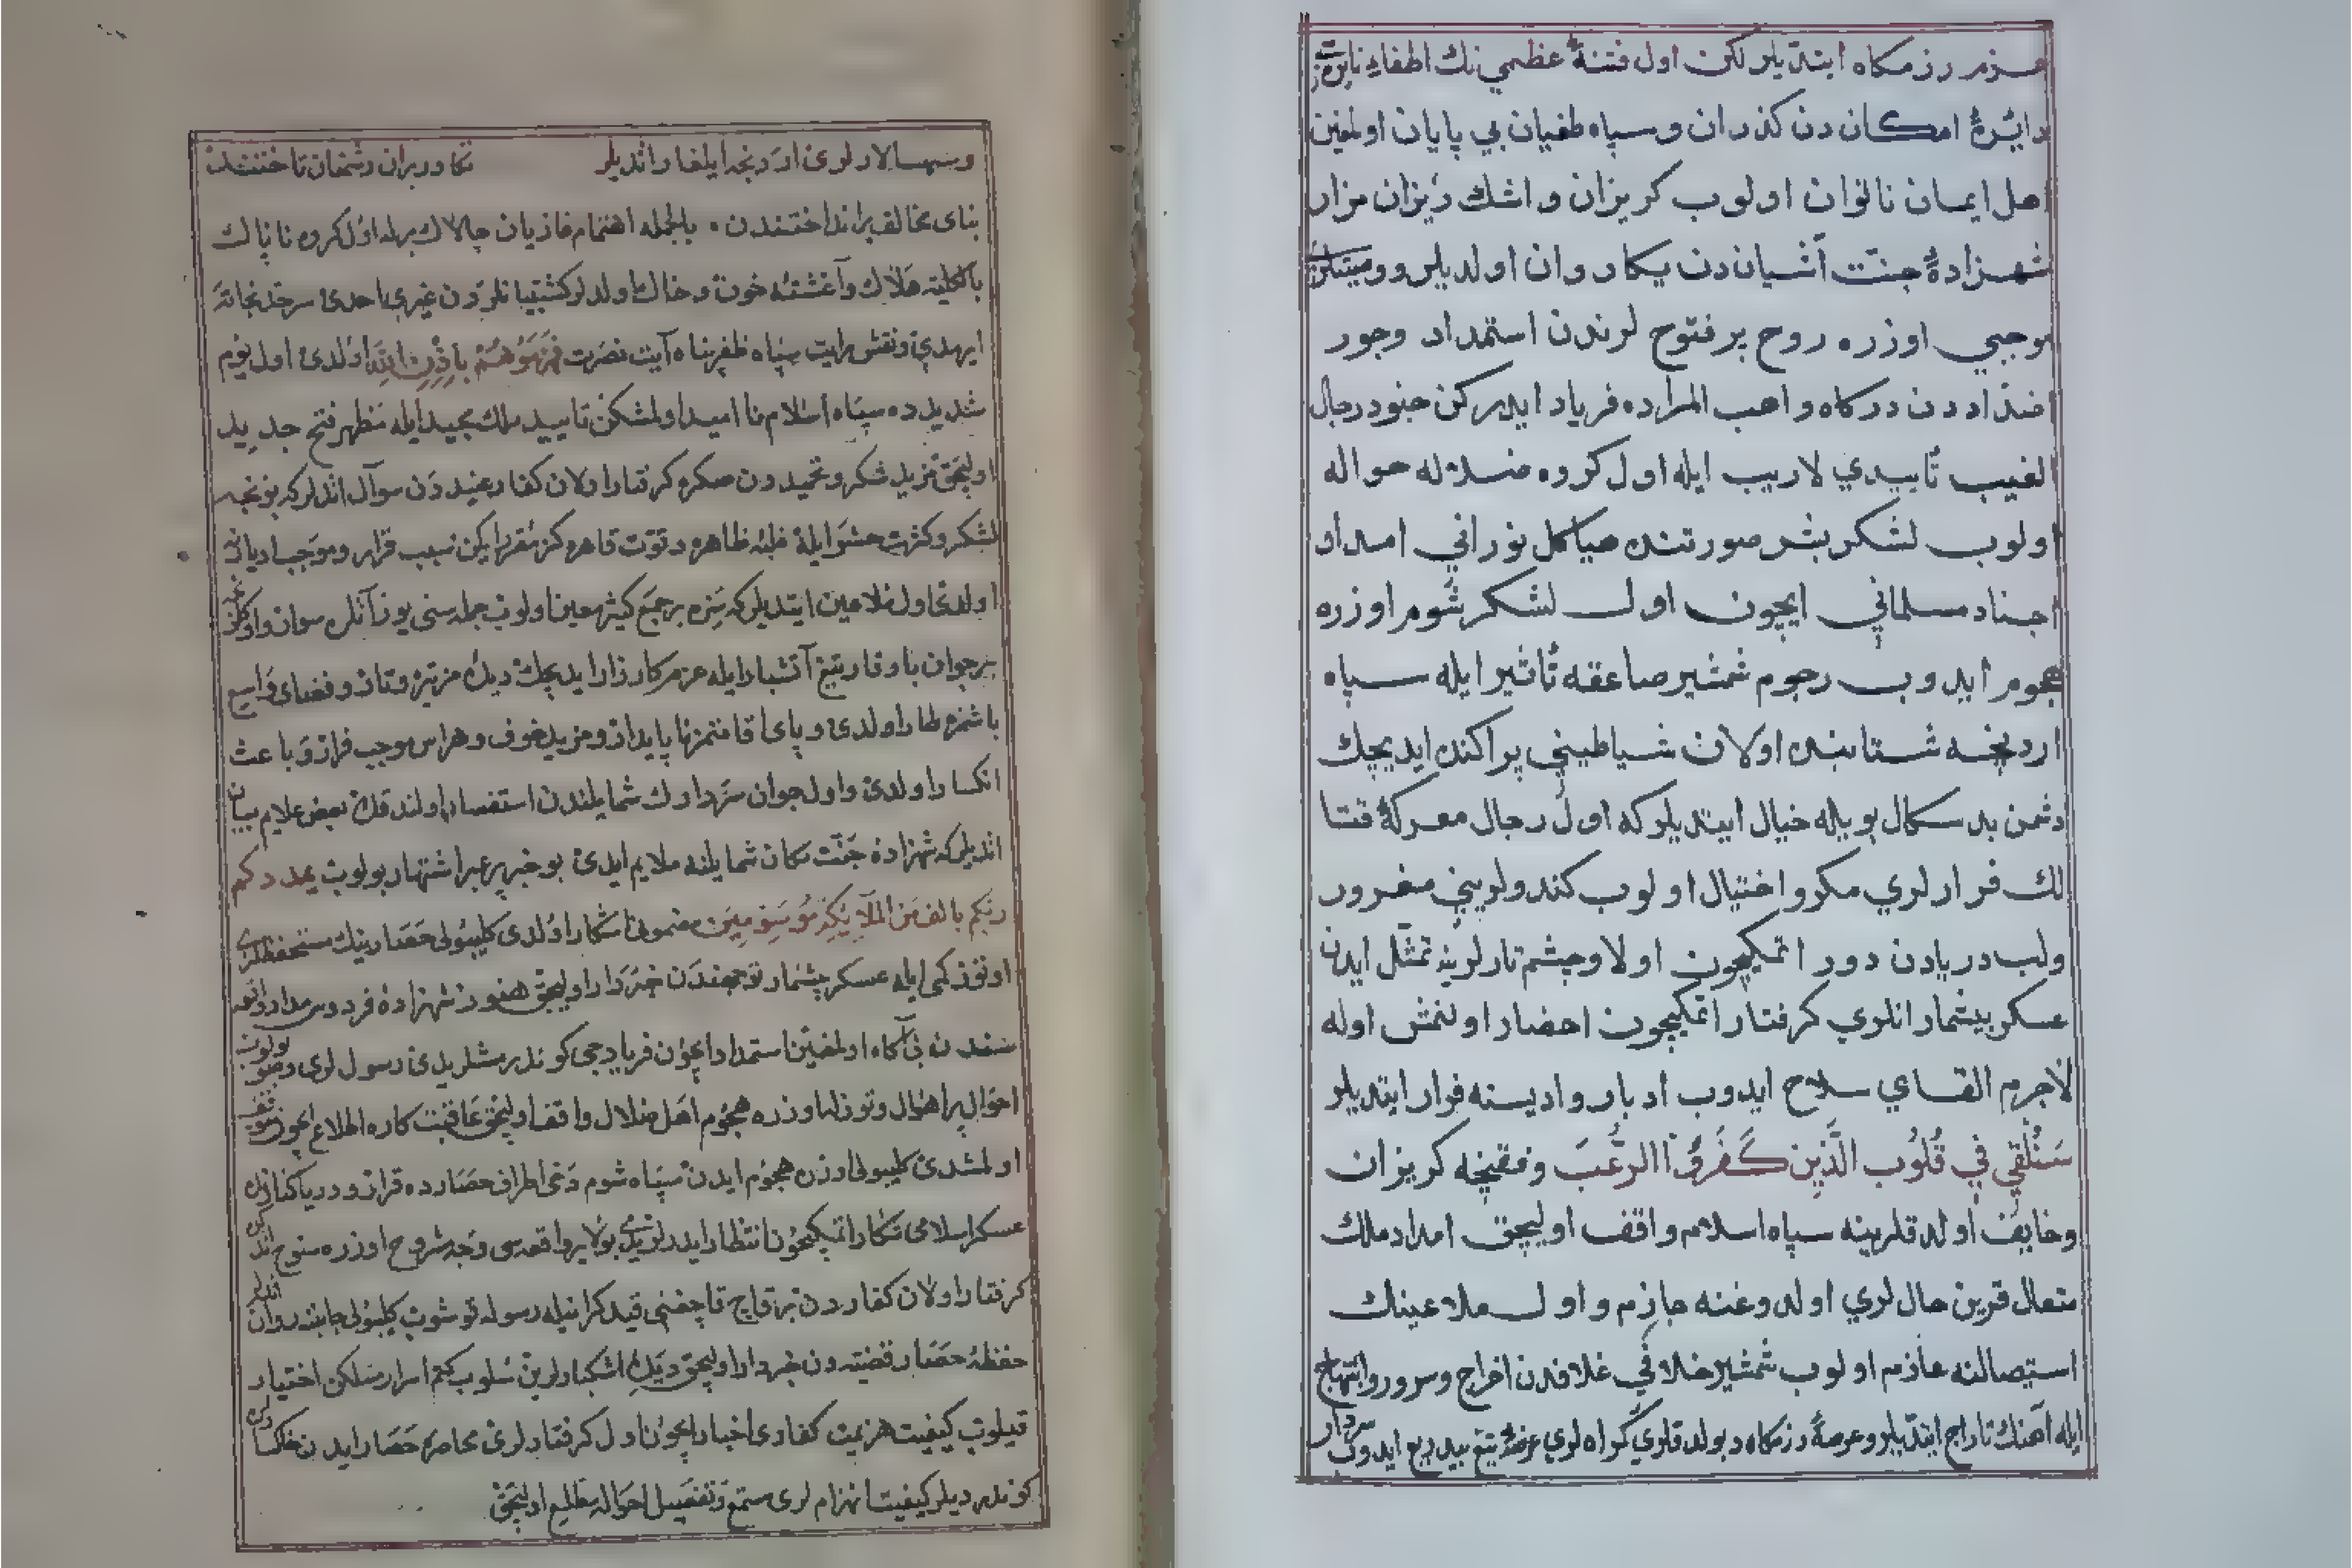 عزم رزمكاه ايتديلر لكن اول فتنهٔ عظمي نك اطفاء نايره سي
دايرهٔ امكان دن كذران و سپاه طغيان بي پايان اولمغين
اهل ايمان ناتوان اولوب كريزان و اشك ريزان مزار
شهزادهٔ جنّت آشيان دن يكا روان اولديلر و
موجبي اوزره روح پر فتوح لرندن استمداد وجور
اضداد دن دركاه واهب المراده فرياد ايدركن جنود رجال
الغيب تأييدي لاريب ايله اول كروه ضلاله حواله
اولوب لشكر بشر صورتنده هياكل نوراني امداد
اجناد مسلماني ايچون اول لشكر شوم اوزره
هجوم ايدوب رجوم شمشير صاعقه تأثير ايله سپاه
اردنجه شتابنده اولان شياطيني پراكنده ايديجك
دشمن بد سكال بويله خيال ايتديلر كه اول رجال معركهٔ قتا
لك فرارلري مكر و احتيال اولوب كندولريني مغرور
ولب دريادن دور اتمكيچون اولا و چشم تارلرينه تمثّل ايدن
عسكر بيشمار انلري كرفتار اتمكيچون احضار اولنمش اوله
لاجرم القاي سلاح ايدوب ادبار واديسنه فرار ايتديلر
سَنُلْقِي فِي قُلُوب الَّذِين كَفَرُوا الرُّعبَ وفقنجه كريزان
وخايف اولدقلرينه سپاه اسلام واقف اوليجق امداد ملك
متعال قرين حال لري اولدوغنه جازم و اول ملاعينك
استيصالنه عازم اولوب شمشير خلافي غلافدن اخراج و سرور و ابتهاج
ايله آهنك تاراج ايتديلر و عرصهٔ رزمكاه ده بولدقلري كمراه لري عرضهٔ تيغ بيدريغ ايدوب سردار
و سپهسالارلرى اردنجه ايلغار اتديلر تكاور بران دشمنان تاختندن
بناى مخالف برانداختندن . بالجمله اهتمام غازيان چالاك برله اول كروه ناپاك
بالكليه هلاك و آغشتهٔ خون و خاك اولدلر كشتيبانلردن غيرى احدى سرحد نجاته
ايرمدى و نقش رايت سپاه ظفرپناه آيت نصرت فَهَزَمُوهُمْ بِاِذْنِ اللّٰهِ اولدى اول يوم
شديدده سپاه اسلام نا اميد اولمشكن تاييد ملك مجيد ايله مظهر فتح جديد
اوليجق مزيد شكر و تحميد دن صكره كرفتار اولان كفار عنيد دن سوآل اتدلر كه بونجه
لشكر و كثرت حشر ايله غلبهٔ ظاهره و قوت قاهره كز مقرر ايكن سبب فرار و موجب ادبار نه
اولدى اول ملاعين ايتديلر كه سزه بر جمع كثير معين اولوب جمله سنى يوز آتلره سوار و اوكلرنجه
بر جوان باوقار تيغ آتشبار ايله عزم كارزار ايديجك ديدهٔ مز تيره و تار و فضاى واسع
باشمزه طار اولدى و پاى اقامتمز ناپايدار و مزيد خوف و هراس موجب فرار و باعث
انكسار اولدى و اول جوان سردارك شمايلندن استفسار اولندقده بعض علايم بيان
اتديلر كه شهزادهٔ جنّت مكان شمايلنه ملايم ايدى بو خبر پرعبر اشتهار بولوب يمددكم
ربكم بالف من الملآيكة مسومين مضمونى آشكار اولدى كليبولى حصارينك مستحفظلرى
اوتوز كمى ايله عسكر بيشمار توجهندن خبردار اوليجق هنوز شهزادهٔ فردوس مدار واقعه
سندن بى آكاه اولمغين استمداد ايچون فريادجى كوندرمشلريدى رسول لرى وصول بولوب
احوال پر اهوال و توزله اوزره هجوم اهل ضلال واقف اوليجق عاقبت كاره اطلاع ايچون متوقف
اولمشدى كليبولى اوزره هجوم ايدن سپاه شوم دخى اطراف حصارده قرار و دريا كنارنده
عسكر اسلامى شكار اتمكيچون انتظار ايدرلردى بولاير واقعه سى وجه مشروح اوزره سنوح
كرفتار اولان كفاردن بر قاچ قاچغنى قيد كران ايله رسوله قوشوب كليبولى جانبنه روان اتديلر
حفظهٔ حصار قضيه دن خبردار اوليجق ديدهٔ اشكبارلرين سلوب كتم اسرار مسلكن اختيار
قيلوب كيفيت هزيمت كفارى اخبار ايچون اول كرفتارلرى محاصرهٔ حصار ايدن خاكسارلره
كوندرديلر كيفيت انهزام لرى ستمع و تفصيل احواله مطلع اوليجق